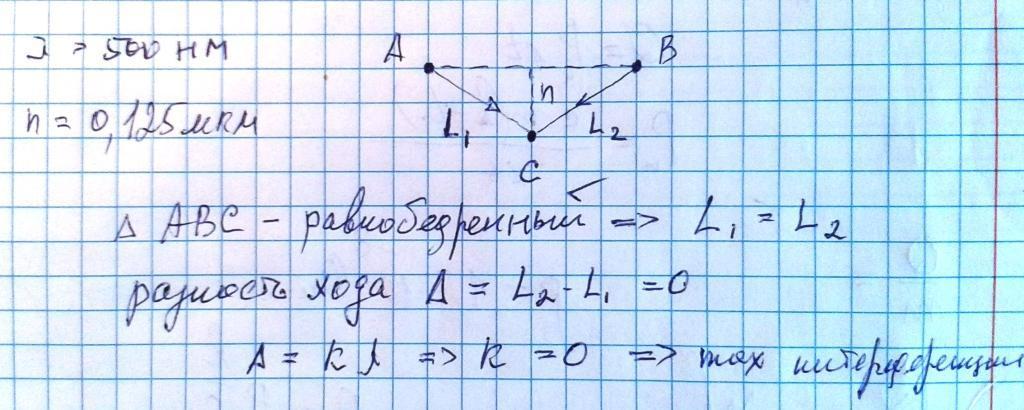 λ = 500 нм
A B
h = 0,125 мкм
h
L₁ L₂
C
Δ ABC - равнобедренный => L₁ = L₂
разность хода Δ = L₂ - L₁ = 0
Δ = k λ => k = 0 => max интерференции